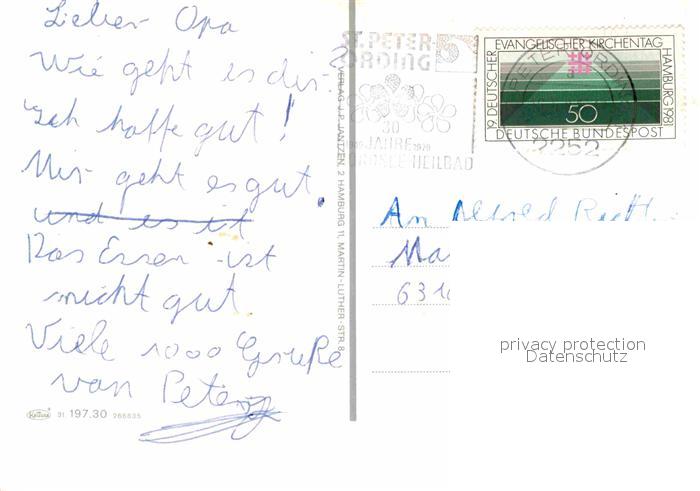 Lieber Opa
Wie geht es dir?
Ich hoffe gut!
Mir geht es gut.
und es ist
Das Essen ist
nicht gut
Viele 1000 Grüße
von Peter
Krüger 91 197.30 266835
VERLAG J. P. JANTZEN, 2 HAMBURG 11, MARTIN-LUTHER-STR. 8
ST. PETER
ORDING
30
JAHRE
1949 1979
NORDSEE-HEILBAD
ST PETER-ORDING
2252
19 DEUTSCHER EVANGELISCHER KIRCHENTAG HAMBURG 1981
50
DEUTSCHE BUNDESPOST
An Alfred
Ma
631
privacy protection
Datenschutz